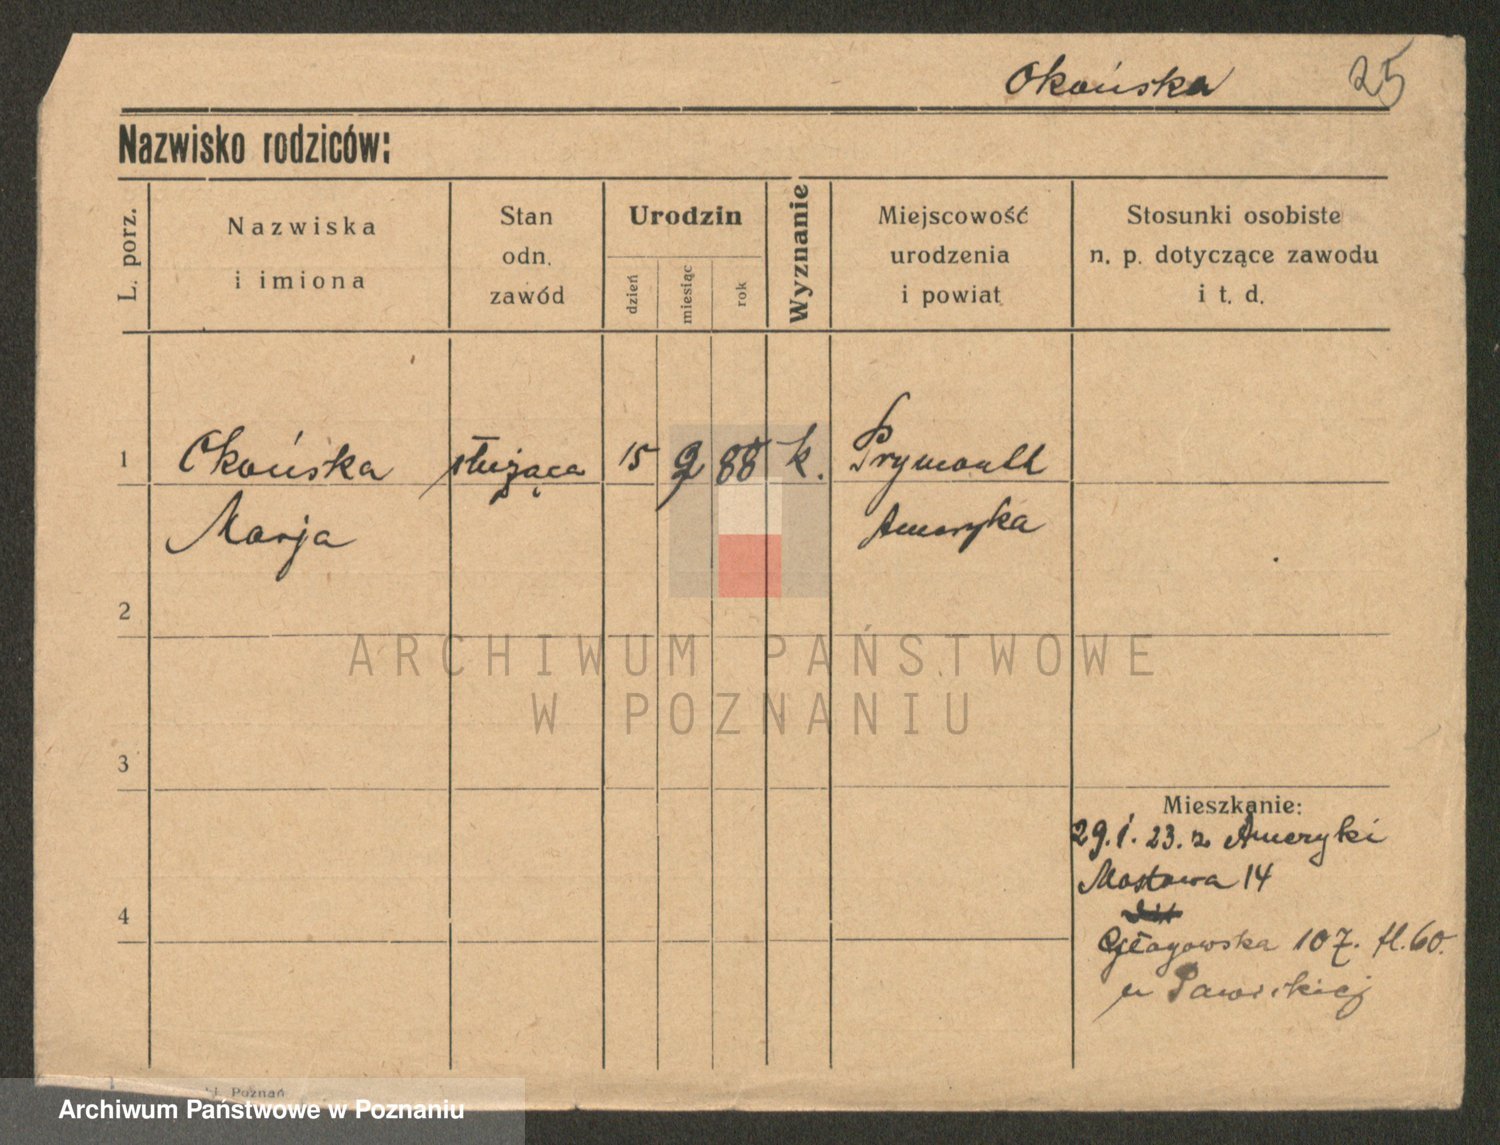 Okońska 25
Nazwisko rodziców:
L. porz.
Nazwiska
i imiona
Stan
odn.
zawód
Urodzin
dzień
miesiąc
rok
Wyznanie
Miejscowość
urodzenia
i powiat
Stosunki osobiste
n. p. dotyczące zawodu
i t. d.
1 Okońska służąca 15 9 88 k. Prymoutt
Marja Ameryka
2
ARCHIWUM PAŃSTWOWE
W POZNANIU
3
Mieszkanie:
29. 1. 23. z Ameryki
Mostowa 14
4
Głogowska 107. fl. 60.
u Pawickiej
Poznań
Archiwum Państwowe w Poznaniu